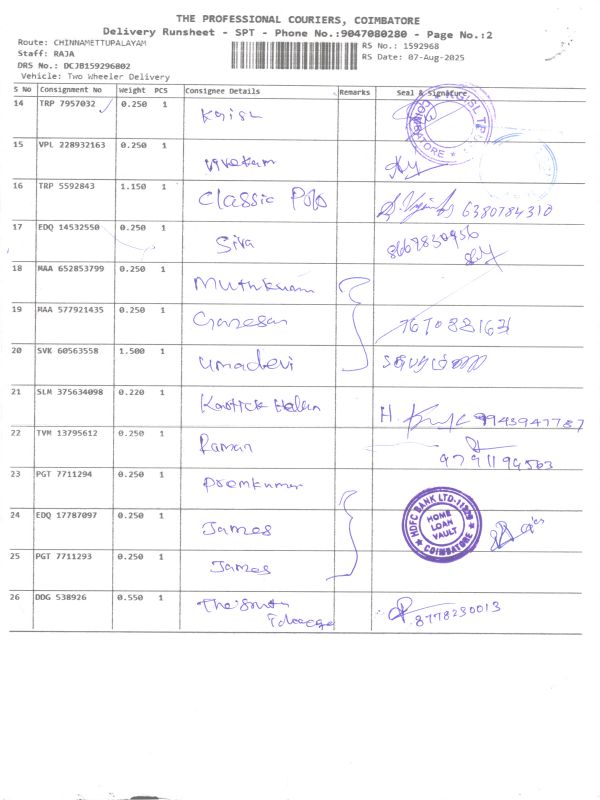 THE PROFESSIONAL COURIERS, COIMBATORE
Delivery Runsheet - SPT - Phone No.:9047080280 - Page No.:2
Route: CHINNAMETTUPALAYAM
RS No.: 1592968
Staff: RAJA
RS Date: 07-Aug-2025
DRS No.: DCJB159296802
Vehicle: Two Wheeler Delivery
S No Consignment No Weight PCS Consignee Details Remarks Seal & Signature
14 TRP 7957032 0.250 1
COIMBATORE
15 VPL 228932163 0.250 1
16 TRP 5592843 1.150 1 Classic Polo 6380784310
17 EDQ 14532550 0.250 1 Siva 8667830956
18 MAA 652853799 0.250 1
19 MAA 577921435 0.250 1 Ganesan
20 SVK 60563558 1.500 1 Umadevi
21 SLM 375634098 0.220 1 H. 9943947787
22 TVM 13795612 0.250 1 Raman 9791194563
23 PGT 7711294 0.250 1 Premkumar
24 EDQ 17787097 0.250 1 James
HDFC BANK LTD
HOME
LOAN
VAULT
COIMBATORE
25 PGT 7711293 0.250 1 James
26 DDG 538926 0.550 1 8778230013